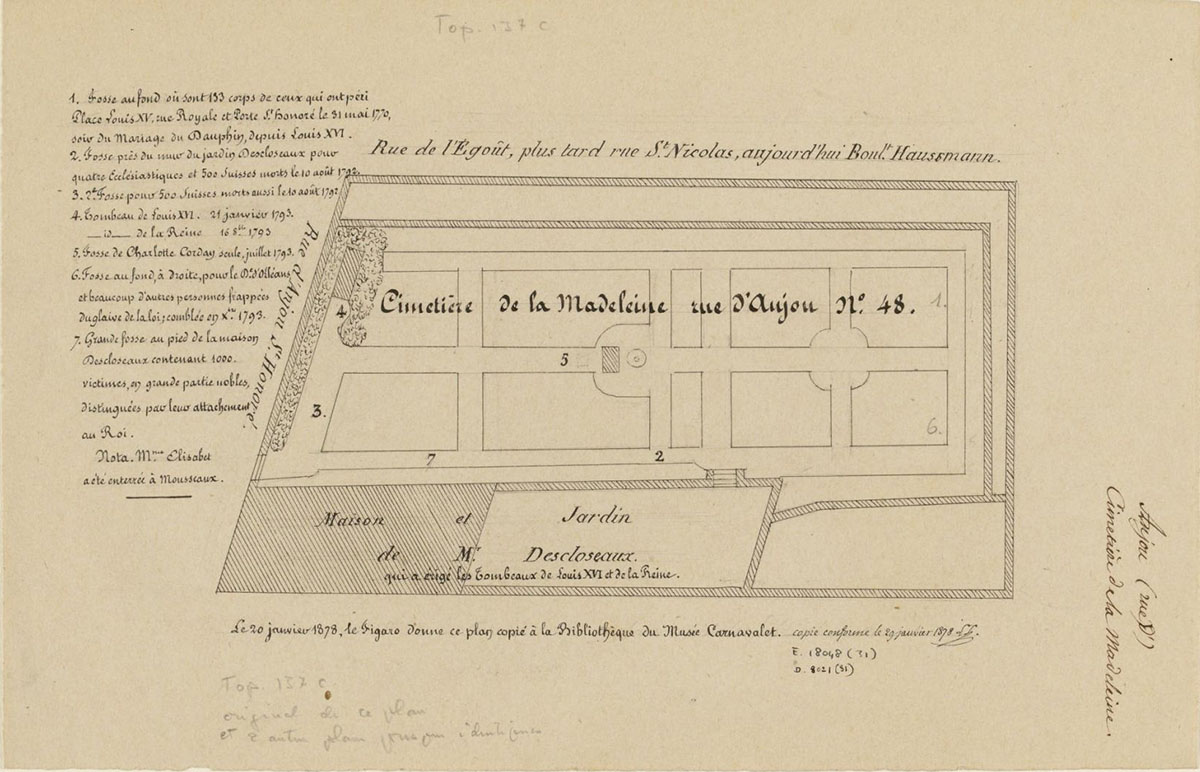 Top. 137 c
1. Fosse au fond où sont 133 corps de ceux qui ont péri
Place Louis XV, rue Royale et Porte St. Honoré le 31 mai 1770,
soir du Mariage du Dauphin, depuis Louis XVI.
2. Fosse près du mur du jardin Descloseaux pour
quatre Ecclésiastiques et 500 Suisses morts le 10 août 1792.
3. 2e. Fosse pour 500 Suisses morts aussi le 10 août 1792
4. Tombeau de Louis XVI. 21 janvier 1793.
—id— de la Reine 16 8bre 1793
5. Fosse de Charlotte Corday seule, juillet 1793.
6. Fosse au fond, à droite, pour le D. d'Orléans,
et beaucoup d'autres personnes frappées
du glaive de la loi; comblée en Xbre 1793.
7. Grande fosse au pied de la maison
Descloseaux contenant 1000
victimes, en grande partie nobles,
distinguées par leur attachement
au Roi.
Nota. Mme Elisabet
a été enterrée à Mousseaux.
Rue de l'Égoût, plus tard rue St. Nicolas, aujourd'hui Boult. Haussmann.
Rue d'Anjou St. Honoré.
Cimetière de la Madeleine rue d'Anjou No. 48.
1.
4
5
3.
6.
7
2
Maison et Jardin
de Mr. Descloseaux.
qui a érigé les Tombeaux de Louis XVI et de la Reine.
Le 20 janvier 1878, le Figaro donne ce plan copié à la Bibliothèque du Musée Carnavalet. copie conforme le 29 janvier 1878
E. 18048 (31)
D. 8021 (31)
Anjou (rue d')
Cimetière de la Madeleine.
Top. 137 c
original de ce plan
et 2 autres plans